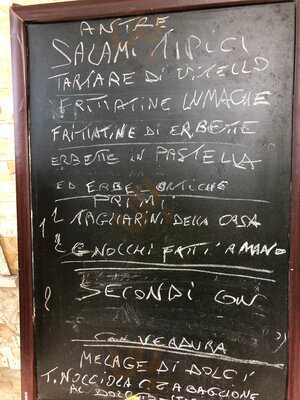 ANTRE
SALAMI TIPICI
TARTARE DI VITELLO
FRITTATINE LUMACHE
FRITTATINE DI ERBETTE
ERBETTE IN PASTELLA
ED ERBE ORTICHE
PRIMI
1 TAGLIARINI DELLA CASA
2 GNOCCHI FATTI A MANO
SECONDI CON
CON VERDURA
MELAGE DI DOLCI
T. NOCCIOLA C. ZABAGLIONE
AL